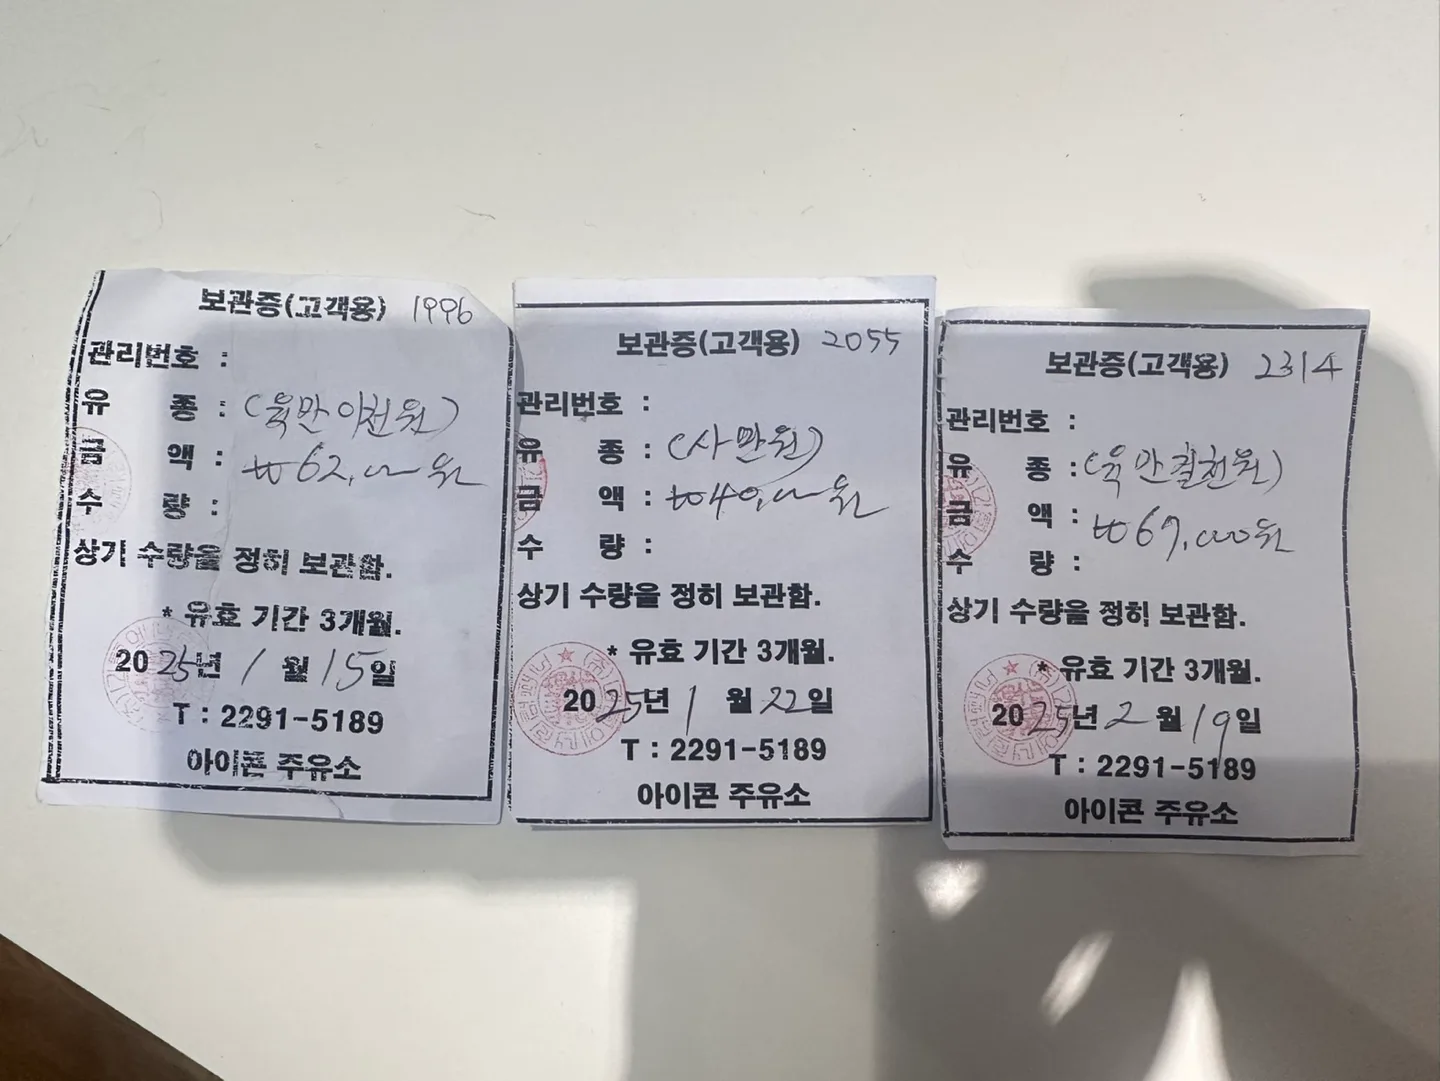 보관증(고객용) 1996
관리번호 :
유 종 : (육만이천원)
금 액 : ₩62,000원
수 량 :
상기 수량을 정히 보관함.
* 유효 기간 3개월.
2025년 1월 15일
T : 2291-5189
아이콘 주유소
보관증(고객용) 2055
관리번호 :
유 종 : (사만원)
금 액 : ₩40,000원
수 량 :
상기 수량을 정히 보관함.
* 유효 기간 3개월.
2025년 1월 22일
T : 2291-5189
아이콘 주유소
보관증(고객용) 2314
관리번호 :
유 종 : (육만칠천원)
금 액 : ₩67,000원
수 량 :
상기 수량을 정히 보관함.
* 유효 기간 3개월.
2025년 2월 19일
T : 2291-5189
아이콘 주유소